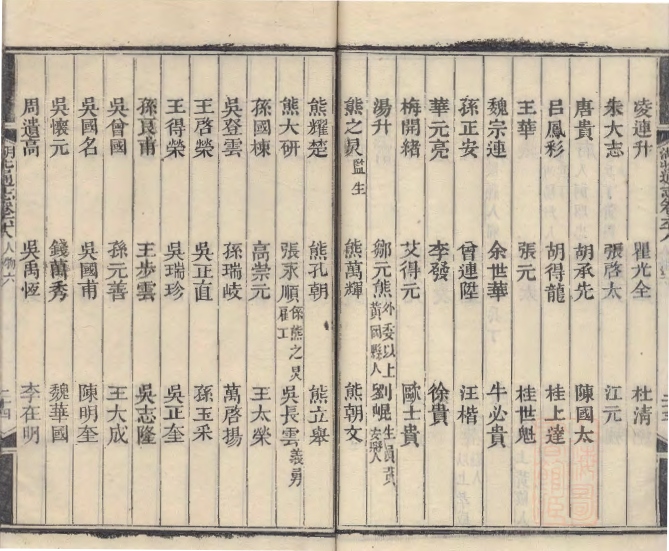 凌連升 瞿光全 杜清
朱大志 張啓太 江元
唐貴 胡承先 陳國太
呂鳳彩 胡得龍 桂上達
王華 張元 桂世魁
魏宗連 余世華 牛必貴
孫正安 曾連陞 汪楷
華元亮 李發 徐貴
梅開緒 艾得元 歐士貴
湯升 鄒元熊 外委以上黃岡縣人 劉崐 生員黃安縣人
熊之炅 監生 熊萬輝 熊朝文
熊耀楚 熊孔朝 熊立舉
熊大研 張永順 係熊之炅雇工 吳長雲 義勇
孫國棟 高崇元 王太榮
吳登雲 孫瑞岐 萬啓揚
王啓榮 吳正直 孫玉采
王得榮 吳瑞珍 吳正奎
孫良甫 王步雲 吳志隆
吳曾國 孫元善 王大成
吳國名 吳國甫 陳明奎
吳懷元 錢萬秀 魏華國
周遺高 吳禹恆 李在明
人物六
二十四